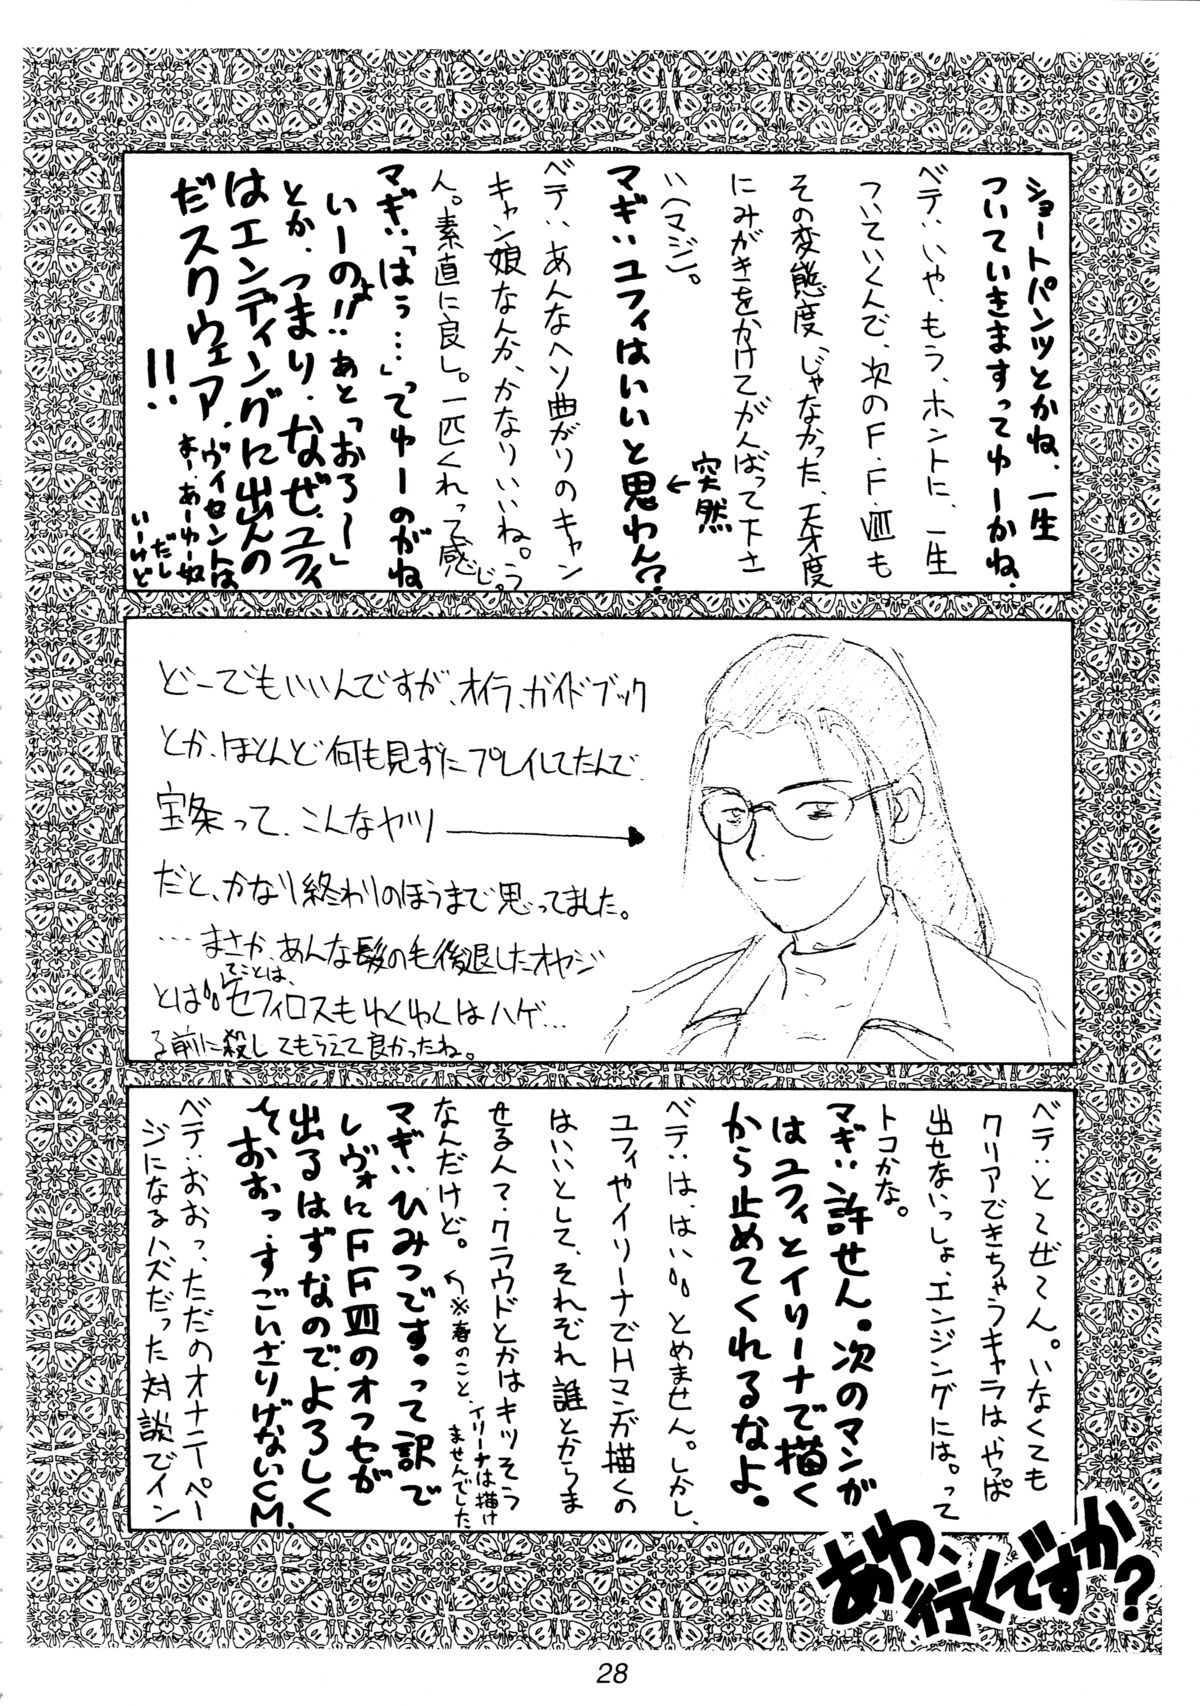 ショートパンツとかね、一生
ついていきますってゅーかね。
ベテ:いや、もう、ホントに、一生
ついていくんで、次のF.F.Ⅷも
その変態度、じゃなかった、天才度
にみがきをかけてがんばって下さ
い(マジ)。
突然
マギ:ユフィはいいと思わん?
ベテ:あんなヘソ曲がりのキャン
キャン娘なんか、かなりいいね。う
ん。素直に良し。一匹くれって感じ。
マギ:「はぅ…」ってゅーのがね
いーのよ!!あと「おろー」
とか。つまり、なぜユフィ
はエンディングに出んの
だスクウェア!!
ヴィセントは
まー、あーゆー奴
だし
いーけど
どーでもいいんですが、オイラ、ガイドブック
とか、ほとんど何も見ずにプレイしてたんで、
宝条って、こんなヤツ
だと、かなり終わりのほうまで思ってました。
…まさか、あんな髪の毛後退したオヤジ
とは。。てことは、セフィロスもゆくゆくはハゲ…
る前に殺してもらえて良かったね。
ベテ:とーぜーん。いなくても
クリアできちゃうキャラは、やっぱ
出せないっしょ、エンジングには。って
トコかな。
マギ:許せん。次のマンガ
はユフィとイリーナで描く
から止めてくれるなよ。
ベテ:は、はい。。とめません。しかし、
ユフィやイリーナでHマンガ描くの
はいいとして、それぞれ誰とからま
せるんで?クラウドとかはキツそう
なんだけど。
※春のこと、イリーナは描け
ませんでした
マギ:ひみつです。って訳で
レヴォにFFⅦのオフセが
出るはずなのでよろしく
ておおっ、すごいさりげないCM。
ベテ:おおっ、ただのオナニーペー
ジになるハズだった対談でイン
あわ、行くですか?
28